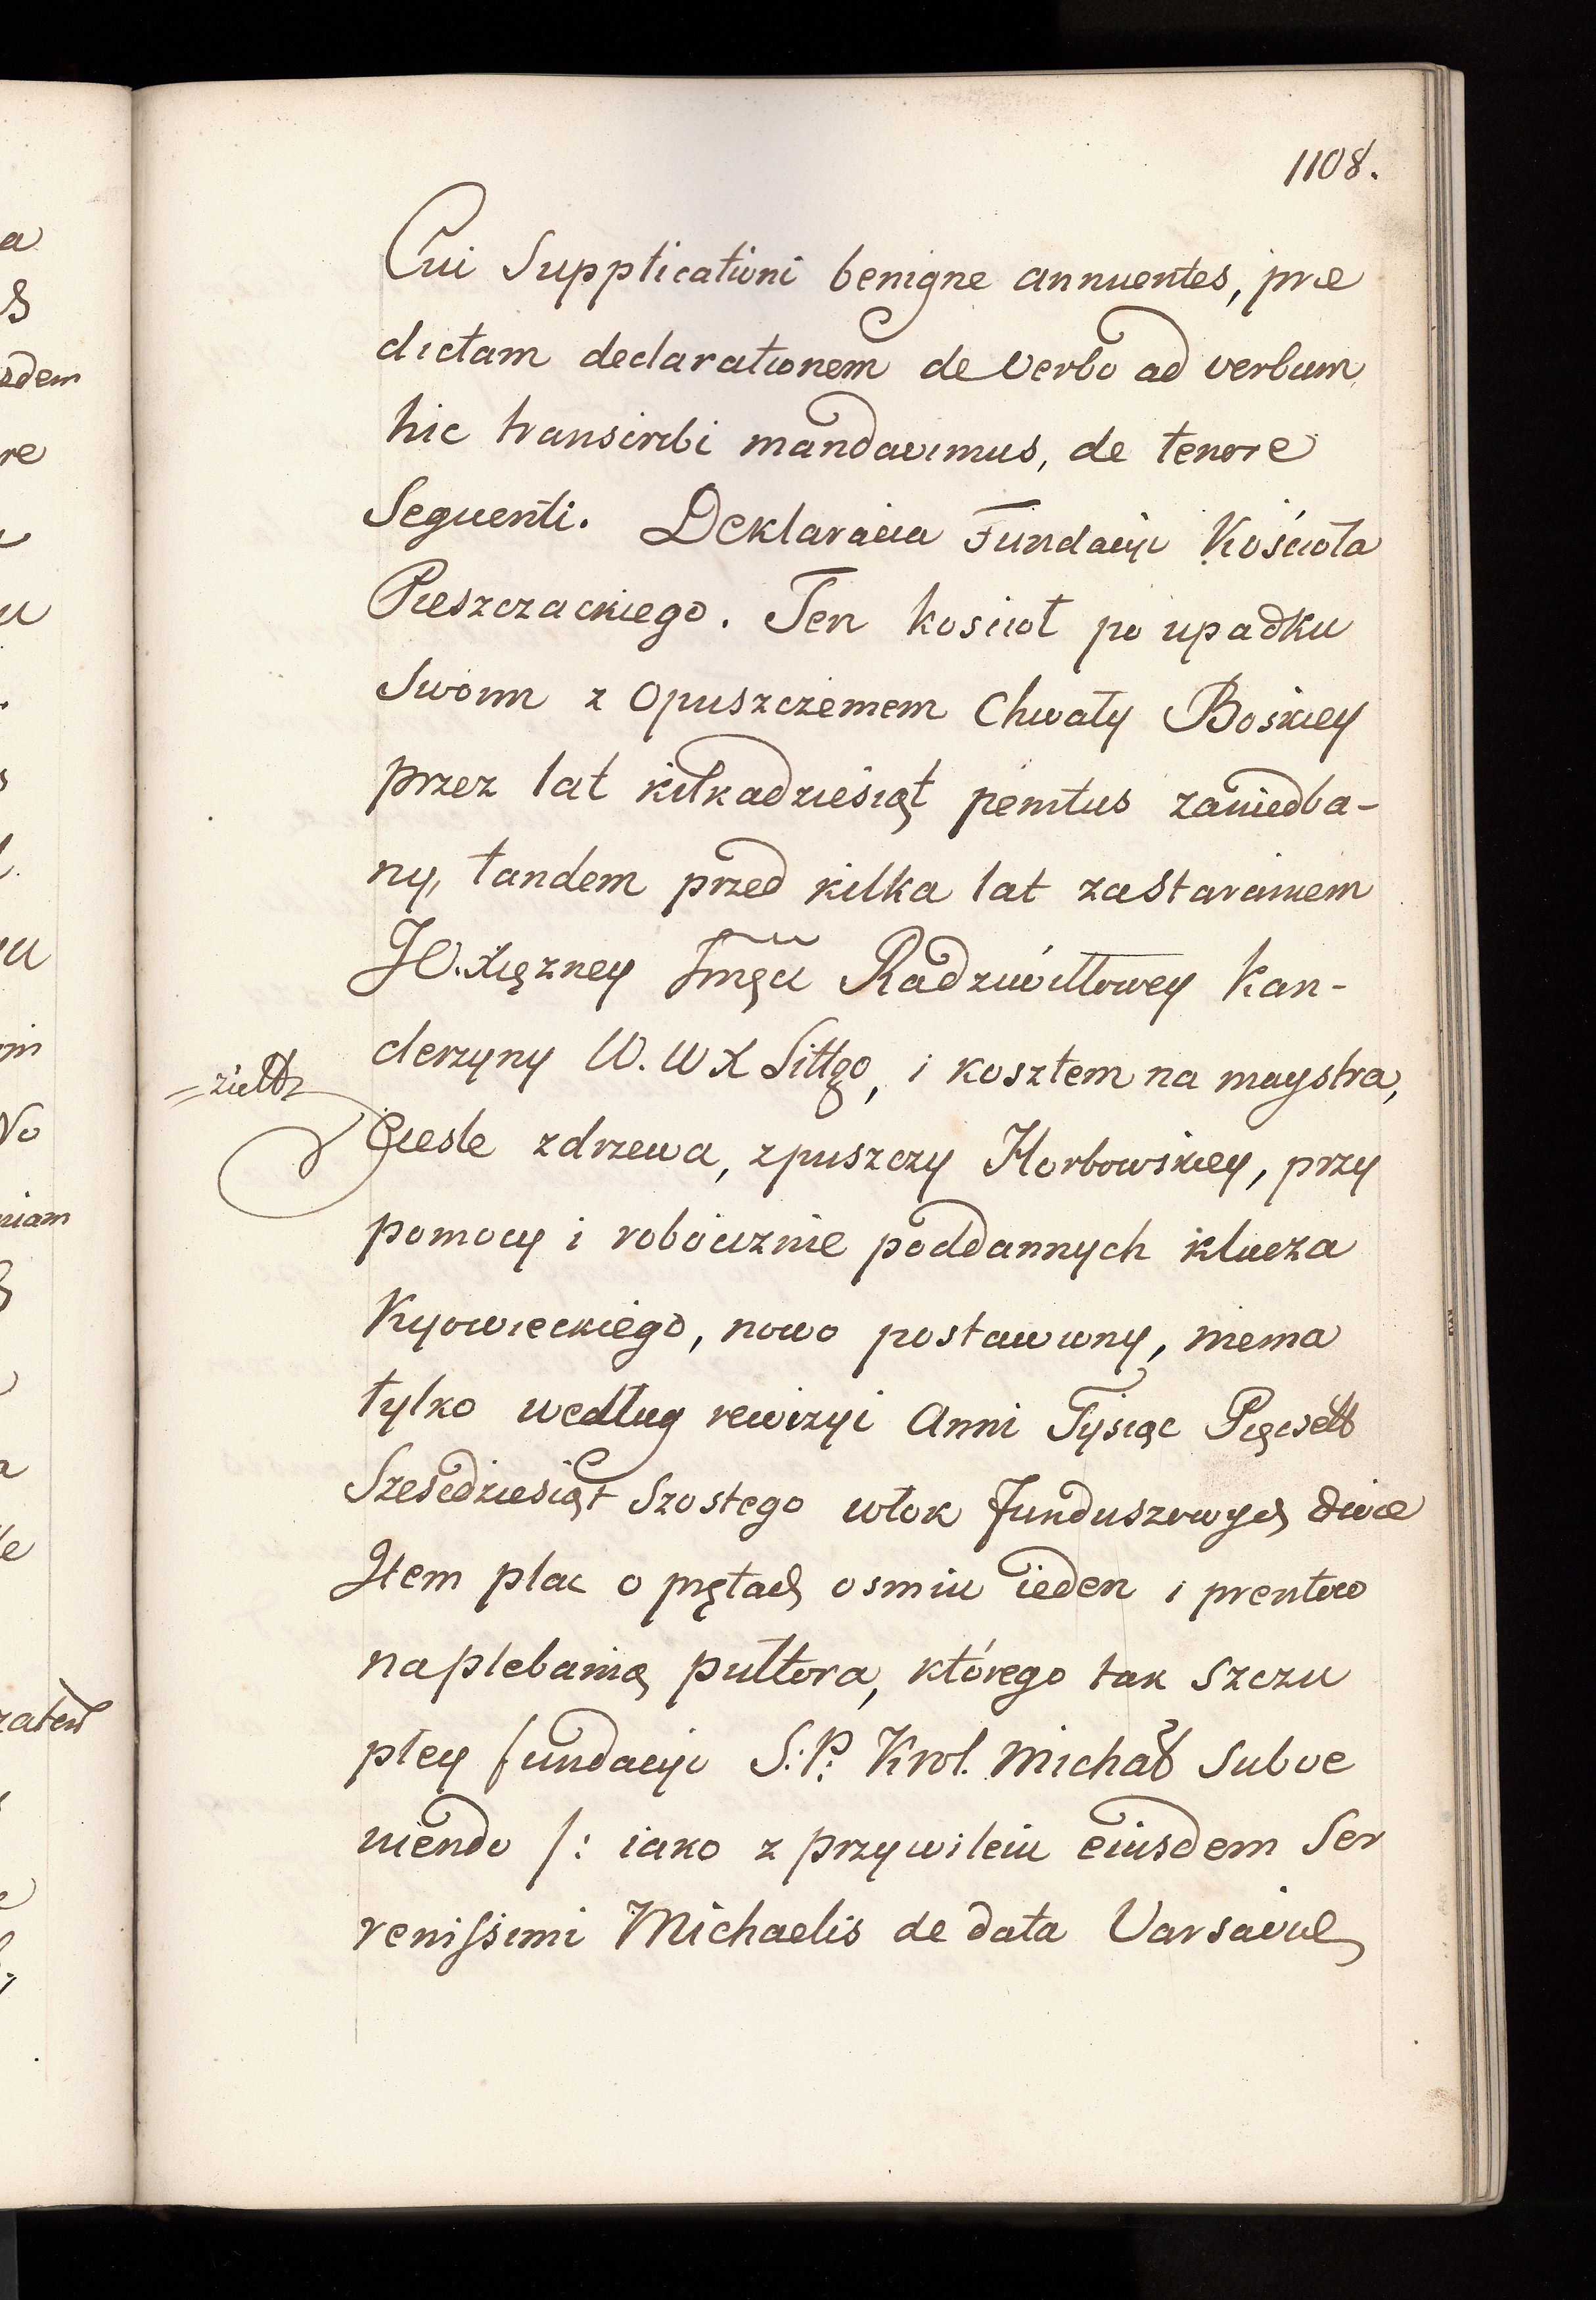 1108.
Cui Supplicationi benigne annuentes, præ
dictam declarationem de Verbo ad verbum
hic transcribi mandavimus, de tenore
Sequenti. Deklaracia Fundacyi Kościoła
Pieszczackiego. Ten koscioł po upadku
Swoim z opuszczeniem Chwały Boskiey
przez lat kilkadziesiąt penitus zaniedba-
ny, tandem przed kilka lat zastaraniem
JO. Xiężney Radziwiłłowey Kan-
clerzyny W. W X Littgo, i kosztem na maystra,
Cieśle zdrzewa, zpuszczy Horbowskiey, przy
pomocy i robociznie poddannych klucza
Kyowieckiego, nowo postawiony, niema
tylko według rewizyi Anni Tysiąc Pięćsett
Szescdziesiąt Szostego włok funduszowych dwie
Item plac o prętach osmiu ieden i prentow
naplebanią pułtora, którego tak szczu
płey fundacyi S: P: Krol. Michał Subve
niendo /: iako z przywileiu eiusdem Ser
renissimi Michaelis de data Varsaviæ